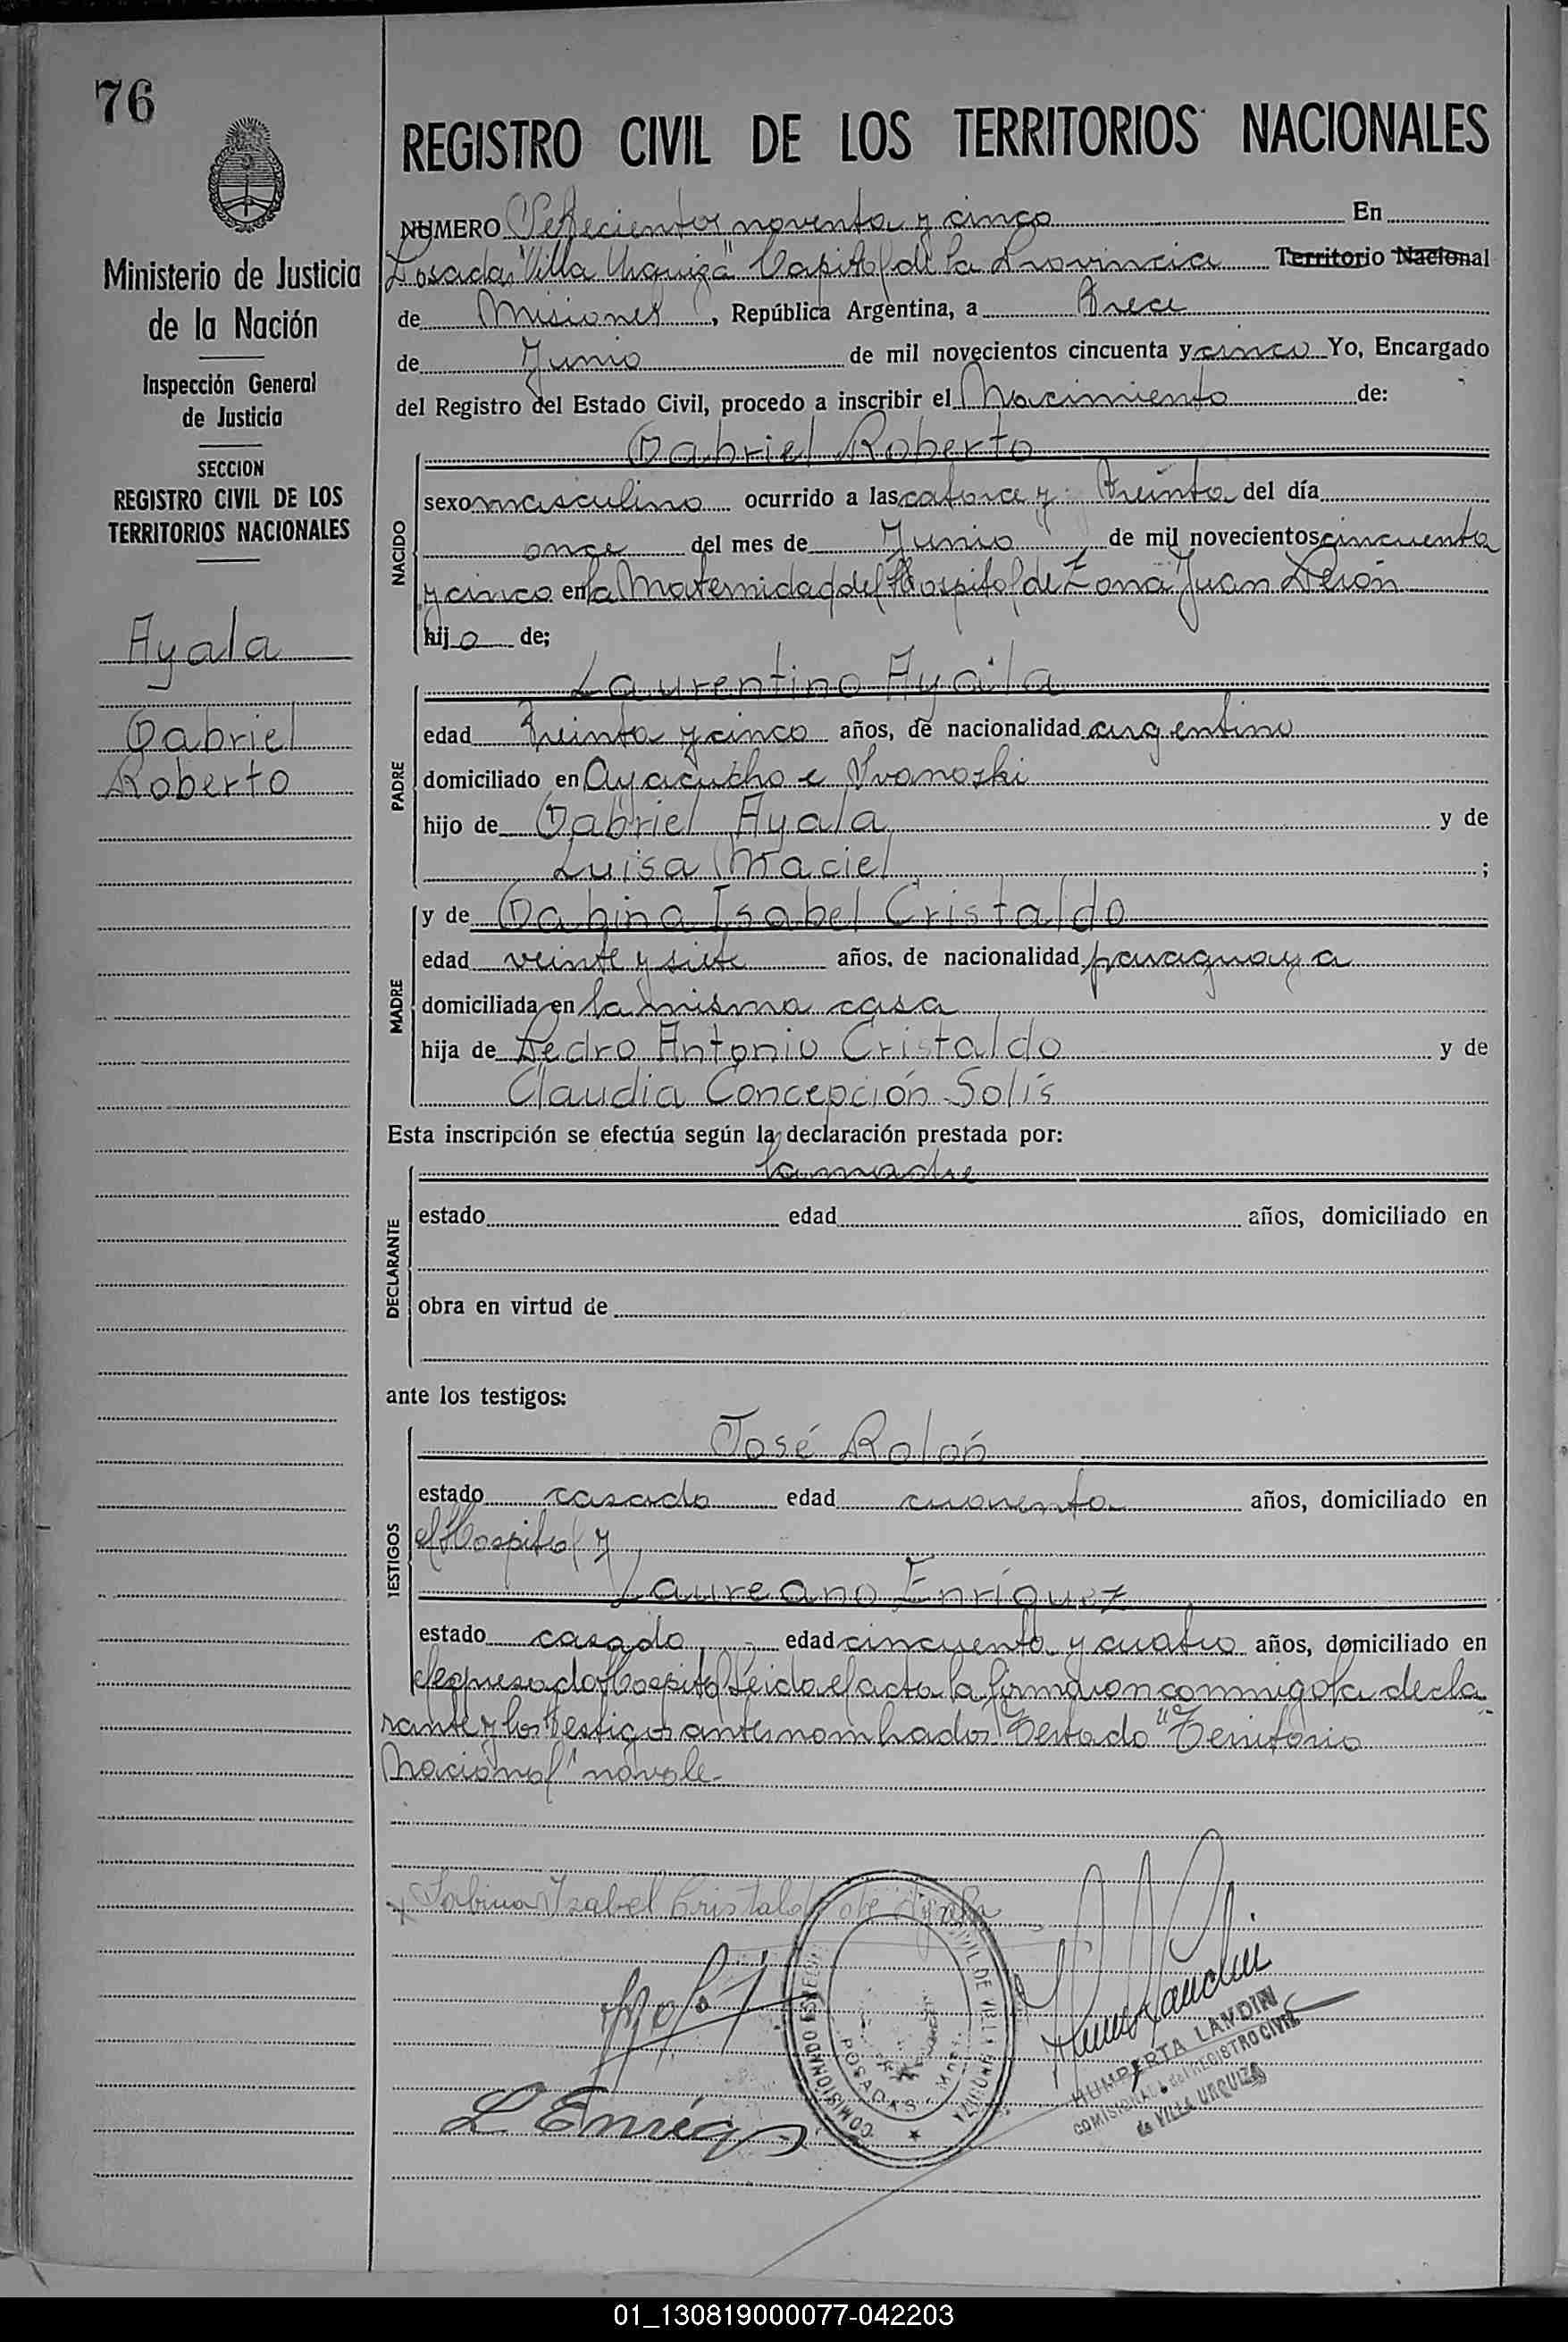 76
REGISTRO CIVIL DE LOS TERRITORIOS NACIONALES
Ministerio de Justicia
de la Nación
Inspección General
de Justicia
SECCION
REGISTRO CIVIL DE LOS
TERRITORIOS NACIONALES
Ayala
Gabriel
Roberto
NUMERO Setecientos noventa y cinco En
Posadas "Villa Urquiza" Capital de la Provincia Territorio Nacional
de Misiones, República Argentina, a Trece
de Junio de mil novecientos cincuenta y cinco Yo, Encargado
del Registro del Estado Civil, procedo a inscribir el Nacimiento de:
NACIDO
Gabriel Roberto
sexo masculino ocurrido a las catorce y Treinta del día
once del mes de Junio de mil novecientos cincuenta
y cinco en la Maternidad del Hospital de Zona Juan Perón
hijo de;
PADRE
Laurentino Ayala
edad Treinta y cinco años, de nacionalidad argentino
domiciliado en Ayacucho e Ivanoski
hijo de Gabriel Ayala y de
Luisa Maciel ;
MADRE
y de Isabel Cristaldo
edad veinte y siete años, de nacionalidad paraguaya
domiciliada en la misma casa
hija de Pedro Antonio Cristaldo y de
Claudia Concepción Solís
Esta inscripción se efectúa según la declaración prestada por:
DECLARANTE
la madre
estado edad años, domiciliado en
obra en virtud de
ante los testigos:
TESTIGOS
José Rolón
estado casado edad cuarenta años, domiciliado en
el Hospital y
Laureano Enríquez
estado casado edad cincuenta y cuatro años, domiciliado en
el expresado Hospital Leida el acta la firmaron conmigo la decla
rante y los testigos antes nombrados Testado "Territorio
Nacional" no vale-
Sabina Isabel Cristaldo de Ayala
L Enríq
COMISIONADO CIVIL DE VILLA URQUIZA
POSADAS
HUMBERTA LANDIN
COMISIONADA del REGISTRO CIVIL
de VILLA URQUIZA
01_130819000077-042203